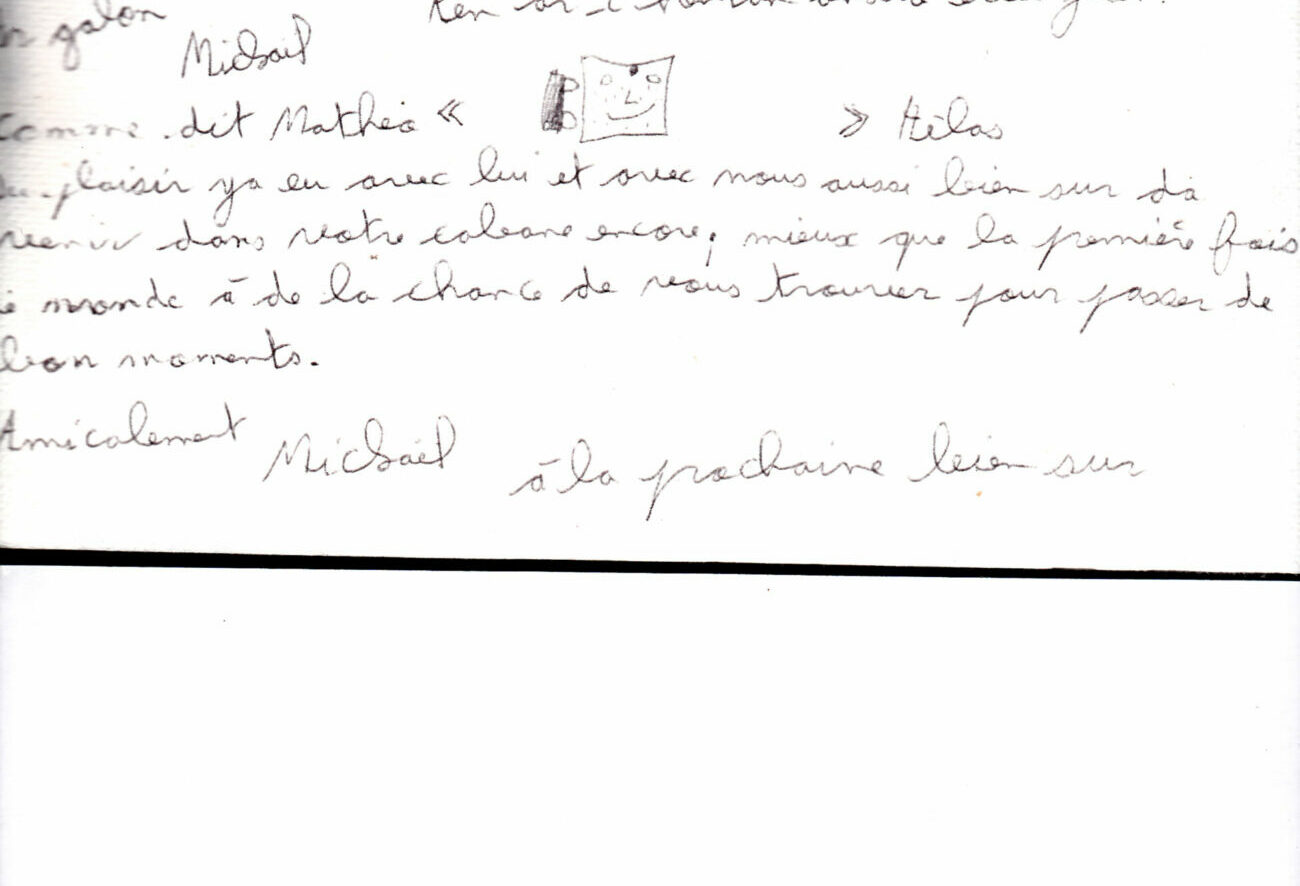 galon
Mickaël
Comme dit Mathéo « » Hélas
du plaisir ya eu avec lui et avec nous aussi bien sur d'à
venir dans votre cabane encore, mieux que la première fois
le monde à de la chance de vous trouver pour passer de
bon moments.
Amicalement Mickaël à la prochaine bien sur